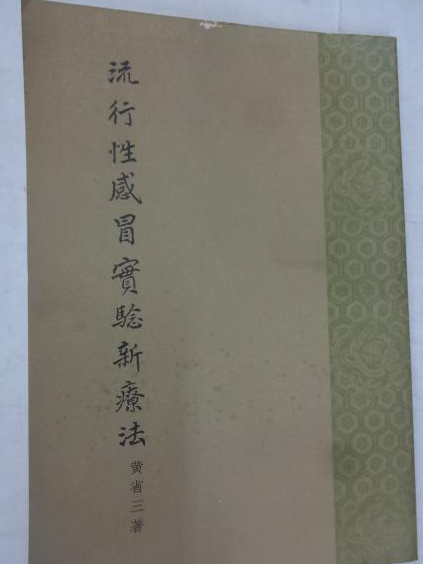 流行性感冒實驗新療法
黄省三著